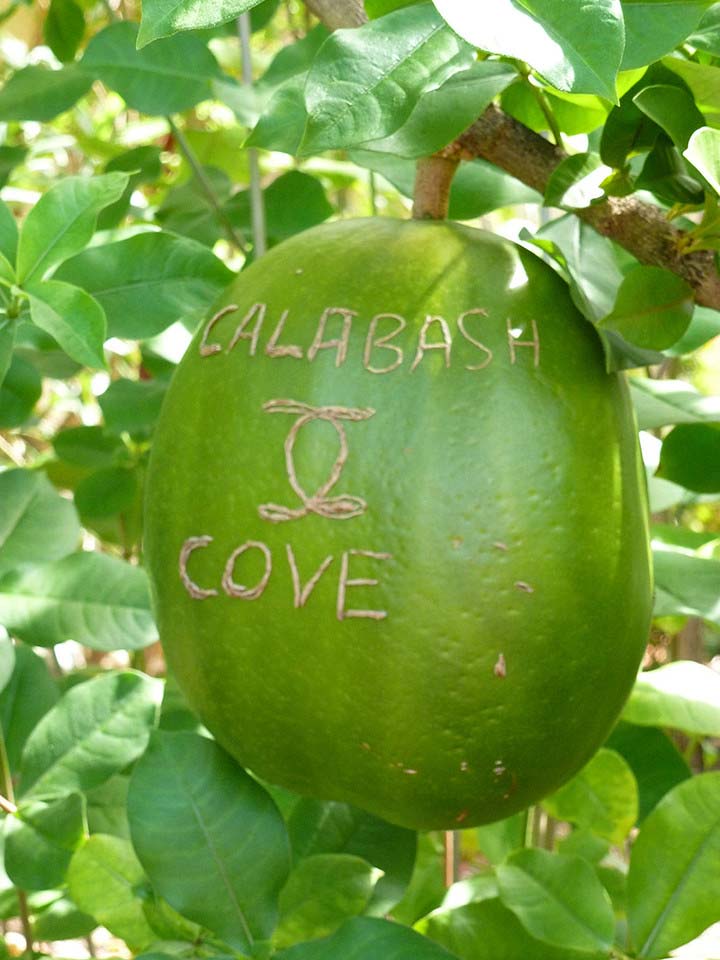 CALABASH
COVE